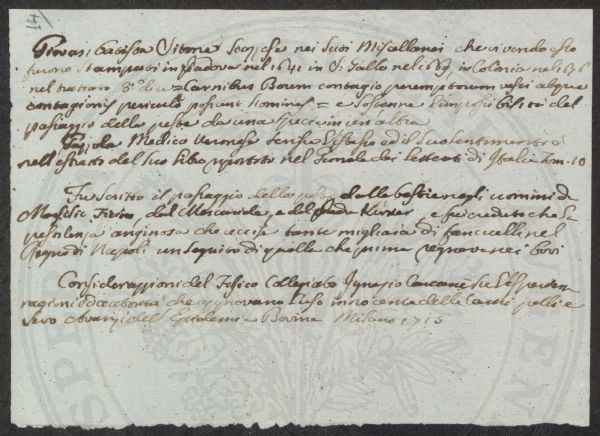 Giovan, Battista Sitone Scrisse nei suoi Miscellanei che vivendo esso
furono stampati in Padova nel 1641 in S. Gallo nel in Colonia nel
nel trattato 8° dice = Carnibus Boum contagio peremptorum vesci absque
contagionis periculo possunt homines = e sostenne l'impossibilità del
passaggio della peste da una specie in altra
Medico Veronese lo stesso ed il suo sentimento è
nell'estratto del suo libro riportato nel Giornale dei Letterati di Italia tom. 10
Fu scritto il passaggio della peste dalle bestie negli uomini da
Marsilio Ficino, dal Mercuriale, e dal Padre Kirker, e fu creduto che la
pestilenza anginosa che uccise tante migliaia di fanciulli nel
Regno di Napoli un seguito di quella che prima regnava nei bovi
Considerazioni del Fisico Collegiato Ignazio Carcani
ragioni ed autorità che approvano l'uso innocente delle Carni pelli e
Sevo Epidemia Bovina Milano 1715